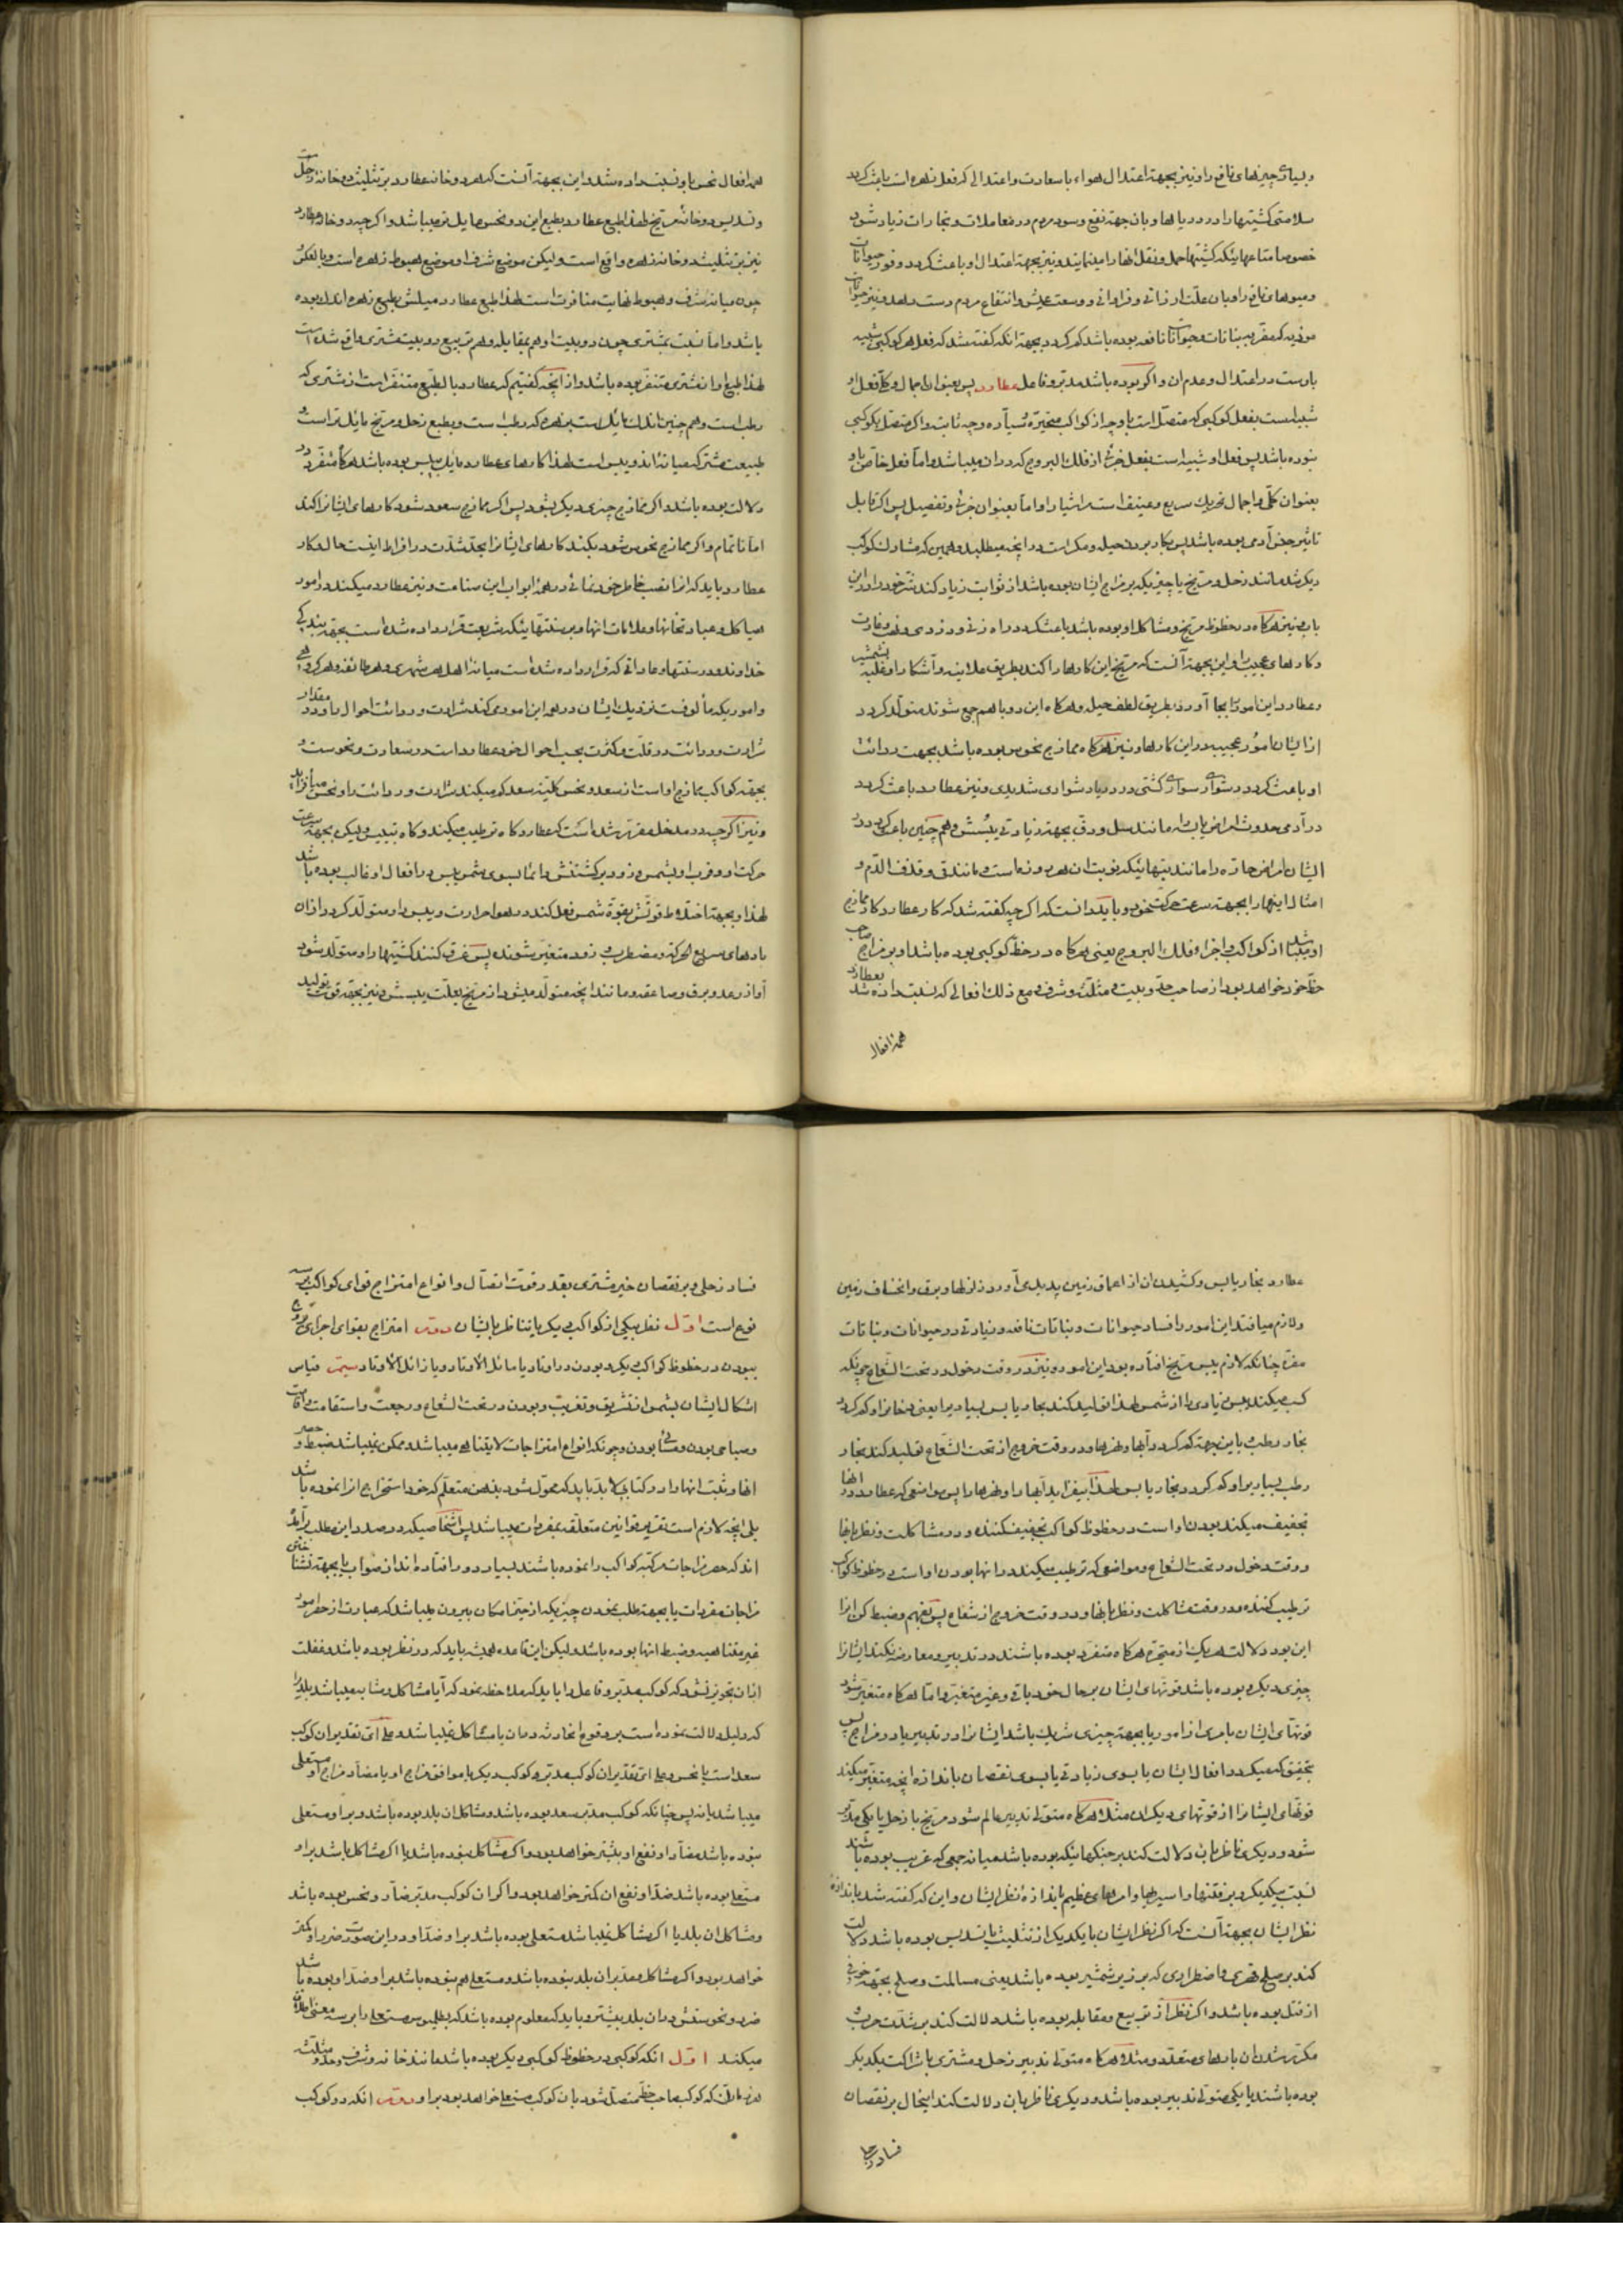 و بسیاری چیزهای نافع را و نیز بجهة اعتدال هواء با سعادت و اعتدالی که فعل زهره است باعث گردد
سلامتی کشتیها را در دریاها و بان جهة نفع و سود مردم در معاملات و تجارات زیاد شود
خصوصا متاعهائیکه کشتیها حمل و نقل انها را مینمایند و نیز بجهة اعتدال او باعث گردد وفور حیوانات
و میوهای نافع را و بان علت ارزانی و فراوانی و وسعت عیش و انتفاع مردم دست دهد و نیز حیوانات
موذیه که مضر به نباتات و حیوانات نافعه بوده باشد کم گردد بجهة انکه گفته شد که فعل هر کوکبی شبیه
باوست در اعتدال و عدم ان و اگر بوده باشد مدبر و فاعل عطارد پس بعنوان اجمال و کلی فعل او
شبیه است بفعل کوکبی که متصل است باو چه از کواکب متحیره سیاره و چه ثابته و اگر متصل بکوکبی
نبوده باشد پس فعل او شبیه است بفعل جزئی از فلک البروج که در ان میباشد و اما فعل خاص باو
بعنوان کلی و اجمال تحریک سریع و عنیف است مر اشیاء را و اما بعنوان جزئی و تفصیل پس اگر قابل
تاثیر جنس آدمی بوده باشد پس بکار برد حیله و مکر است در انچه میطلبد و همین که مشارک کوکب
دیگر شد مانند زحل و مریخ یا چیزیکه بر مزاج ایشان بوده باشد از ثوابت زیاد کند شر خود را در این
باب و نیز هرگاه در حظوظ مریخ و مشاکل او بوده باشد باعث گردد راه زنی و دزدی و نهب و غارت
و کارهای عجیب را و این بجهة آنست که مریخ این کارها را کند بطریق علانیه و آشکارا و غلبه بشمشیر
و عطارد این امور را بجا آورد بطریق لطف حیله و هرگاه این دو با هم جمع شوند متولد گردد
از ایشان امور عجیبه در این کارها و نیز هرگاه ممازج نحوس بوده باشد بجهت ردائت
او باعث گردد دشواری سواری کشتی در دریا دشواری شدیدی و نیز عطارد باعث گردد
در آدمی حدوث امراض یابسه مانند سل و دق بجهة زیادتی یبسش و هم چنین باعث گردد در
ایشان امراض حاره را مانند تبهائیکه نوبت ان هر روزه است و مانند قی و قذف الدم و
امثال اینها را بجهة سرعت حرکت خود و باید دانست که اگر چه گفته شد که کار عطارد کار ممازج
او میباشد از کواکب و اجزاء فلک البروج یعنی هرگاه در حظ کوکبی بوده باشد او بر مزاج صاحب
حظ خود خواهد بود از صاحب حد و بیت و مثلثه و شرف و مع ذلک افعالی که نسبت داده شد بعطارد
همه افعال
همه افعال نحس باو نسبت داده شد و این بجهة آنست که هر دو خانه عطارد بر تثلیث دو خانه زحل است
و تسدیس دو خانه مریخ لهذا طبع عطارد بطبع این دو نحس مایل تر میباشد و اگر چه دو خانه عطارد
نیز بر تثلیث دو خانه زهره واقع است و لیکن موضع شرف او موضع هبوط زهره است و بالعکس و
چون میانه شرف و هبوط نهایت منافرت است لهذا طبع عطارد میلش بطبع زهره اندک بوده
باشد و اما نسبت بمشتری چون دو بیت او هم بمقابله و هم تربیع دو بیت مشتری واقع شده است
لهذا طبع او از مشتری متنفر بوده باشد و از انچه گفتیم که عطارد بالطبع متنفر است از مشتری که
رطب است و هم چنین اندک مایل است بزهره که رطب است و بطبع زحل و مریخ مایل تر است و
طبیعت مشترک میانه ایندو یبس است لهذا کارهای عطارد مایل بیبس بوده باشد هرگاه منفرد در
دلالت بوده باشد و اگر ممازج چیزی دیگر بشود پس اگر ممازج سعود شود کارهای ایشانرا کند
اما نا تمام و اگر ممازج نحوس شود بکند کارهای ایشانرا بحد شدت و افراط اینست حال و کار
عطارد و باید که انرا نصب خاطر خود نمائی در همه ابواب این صناعت و نیز عطارد میکند در امور
هیاکل و عبادتخانها و علامات انها و بر سنتهائیکه شریعت قرار داده شده است بجهة بندگی
خداوند و در سنتها و عاداتی که قرار داده شده است میانه اهل هر شهری و هر طائفه و هر گروهی
و اموریکه مألوفست نزدیک ایشان در همه این امور می کند شرارت و ردائت احوال باو و در مقدار
شرارت و ردائت در قلت و کثرت بحسب احوال خود عطارد است در سعادت و نحوست و
بجهة کواکب ممازج او است از سعد و نحس کلیة سعد کم میکند شرارت و ردائت را و نحس میافزاید
و نیز اگر چه در مدخل مقرر شده است که عطارد گاه ترطیب میکند و گاه تیبیس و لیکن بجهة سرعت
حرکت او و قرب او بشمس و زود برگشتنش دائما بسوی شمس یبس در افعال او غالب بوده باشد
لهذا و بجهة اختلاط قوتش بقوة شمس فعل کند در هوا حرارت و یبس را و متولد گردد از ان
بادهای سریع الحرکة و مضطرب و زود متغیر شونده پس غرق کنند کشتیها را و متولد شود
آواز رعد و برق و صاعقه و مانند انچه متولد میشود از مریخ بعلت یبسش و نیز بجهة قوت تولید
عطارد بخار یابس و کشیدن ان از اعماق زمین پدید می آورد زلزلها و برق و انخساف زمین
و لازم میافتد این امور را فساد حیوانات و نباتات نافعه و زیادتی در حیوانات و نباتات
مضره چنانکه لازم یبس مریخ افتاده بود این امور و نیز در وقت دخول در تحت الشعاع چونکه
کسب میکند یبس زیادی را از شمس لهذا تولید کند بخار یابس بسیار را یعنی دخانرا و کم گردد
بخار رطب باین جهة کم گردد آبها و نهرها و در وقت خروج از تحت الشعاع تولید کند بخار
رطب بسیار را و کم گردد بخار یابس لهذا بیفزاید آبها را و نهرها را پس مواضعی که عطارد در انها
تجفیف میکند بودن او است در حظوظ کواکب تجفیف کننده و در مشاکلت و نظر بانها
و وقت دخول در تحت الشعاع و مواضعی که ترطیب میکند در انها بودن او است در حظوظ کواکب
ترطیب کننده و در وقت مشاکلت و نظر بانها و در وقت خروج از شعاع پس بفهم و ضبط کن انرا
این بود دلالت هر یک از متحیره هرگاه منفرد بوده باشند در تدبیر و معارضه نکند ایشانرا
چیزی دیگر و بوده باشد قوتهای ایشان بر حال خود باقی و غیر متغیر و اما هرگاه متغیر شود
قوتهای ایشان بامری از امور یا بجهة چیزی شریک باشد ایشانرا در تدبیر یا در مزاج پس
بتحقیق که میگردد افعال ایشان یا بسوی زیادتی یا بسوی نقصان باندازه انچه متغیر میکند
قوتهای ایشانرا از قوتهای دیگران مثلا هرگاه متولی تدبیر عالم شود مریخ با زحل یا یکی مدبر
شود و دیگری ناظر بان دلالت کند بر جنگهائیکه بوده باشد میانه جمعی که غریب بوده باشند
نسبت بیکدیگر و بر فتنها و اسیریها و امرهای عظیم باندازه نظر ایشان و این که گفته شد باندازه
نظر ایشان بجهة آنست که اگر نظر ایشان با یکدیگر از تثلیث یا تسدیس بوده باشد دلالت
کند بر صلح قهری و اضطراری که بر زیر شمشیر بوده باشد یعنی مسالمت و صلح بجهة خوفی
از قتل بوده باشد و اگر نظر از تربیع و مقابله بوده باشد دلالت کند بر شدت حرب و
مکرر شدن ان بارهای متعدده و مثلا هرگاه متولی تدبیر زحل و مشتری با شراکت یکدیگر
بوده باشند یا یکی متولی تدبیر بوده باشد و دیگری ناظر بان دلالت کند اینحال بر نقصان
فساد زحل
فساد زحلی و بر نقصان خیر مشتری بقدر قوت اتصال و انواع امتزاج قوای کواکب بر سه
نوع است اول نظر یکی از کواکب دیگر یا تناظر بایشان دوم امتزاج بقوای اجزای بروج
ببودن در حظوظ کواکب دیگر و بودن در اوتاد یا مائل الاوتاد و یا زائل الاوتاد سیم قیاس
اشکال ایشان بشمس از تشریق و تغریب و بودن در تحت الشعاع و رجعت و استقامت و اقامت
و صباحی بودن و مسائی بودن و چونکه انواع امتزاجات لایتناهی میباشد و ممکن نمیباشد ضبط و حصر
انها و ثبت انها را در کتابی لابد باید که محول شود بذهن متعلم که خود استخراج انرا نموده باشد
بلی انچه لازم است تقریر قوانین متعلقه بمفردات میباشد پس اشخاصیکه در صدد این مطلب برآمده
اند که حصر مزاجات مرکبه کواکب را نموده باشند بسیار دور افتاده اند از صواب یا بجهة نشناختن
مزاجات مفردات یا بجهة طلب نمودن چیزیکه از حیز امکان بیرون میباشد که عبارت از حصر امور
غیر متناهیه و ضبط انها بوده باشد و لیکن این قاعده همیشه باید که در نظر بوده باشد و غفلت
از ان تجویز نشود که کوکب مدبر و فاعل را باید که ملاحظه نمود که آیا مشاکل و مشابه میباشد بلد را
که دلیل دلالت نموده است بر وقوع انحادثه در ان یا مشاکل نمیباشد و علی ای تقدیر ان کوکب
سعد است یا نحس و علی ای تقدیر ان کوکب مدبر و کوکب دیگر یا موافق مزاج او یا مضاد مزاج او مستعلی
میباشد یا نه پس چنانکه کوکب مدبر سعد بوده باشد و مشاکل ان بلد بوده باشد و بر او مستعلی
نبوده باشد مضاد او نفع او بیشتر خواهد بود و اگر مشاکل نبوده باشد یا اگر مشاکل باشد بر او
مستعلی بوده باشد ضد او نفع ان کمتر خواهد بود و اگر ان کوکب مدبر ضار و نحس بوده باشد
و مشاکل ان بلد یا اگر مشاکل نمیباشد مستعلی بوده باشد بر او ضد او در این صورت ضرر او کمتر
خواهد بود و اگر مشاکل و مدبر ان بلد نبوده باشد و مستعلی هم نبوده باشد بر او ضد او بوده باشد
ضرر و نحوستش در ان بلد بیشتر و باید که معلوم بوده باشد که بطلمیوس مستعلی را بر سه معنی اطلاق
میکند اول انکه کوکبی در حظوظ کوکبی دیگر بوده باشد مانند خانه و شرف و حد و مثلثه
هر زمانی که کوکب صاحب حظ متصل شود بان کوکب مستعلی خواهد بود بر او دوم انکه دو کوکب